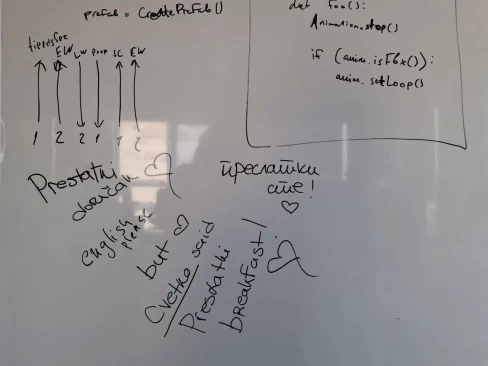 prefab = CreatePrefab()
def foo():
Animation.stop()
if (anim.isFbx()):
anim.setLoop()
EW LW Poop SC EW
1 2 2 1 1 2
Prestatni
преслатки
сте!
english
please
but
Cvetko said
breakfast!